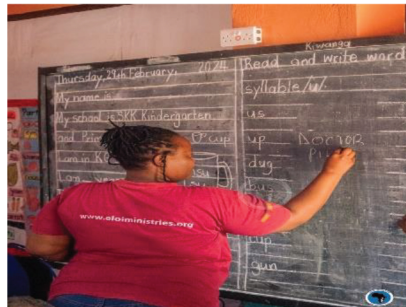 Kiwanga
Thursday, 29th February, 2024
My name is
My school is SKK Kindergarten
and Prim
cup
I am in
I am
Read and write word
syllable /u/.
us
up
DOCTOR
dug
bus
gun
www.ofoiministries.org